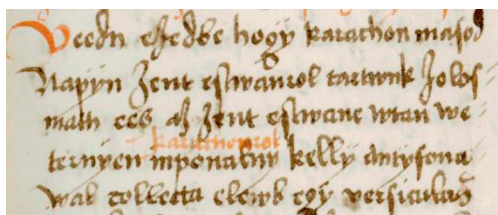 Veedn esedbe hogy karachon masod
Napyn Zent estwanrol tartwnk Zolos-
math ees az Zent estwane wtan we-
karachonrol
ternyen inponalny kelly antyfona
wal collecta elewb egy versiculus